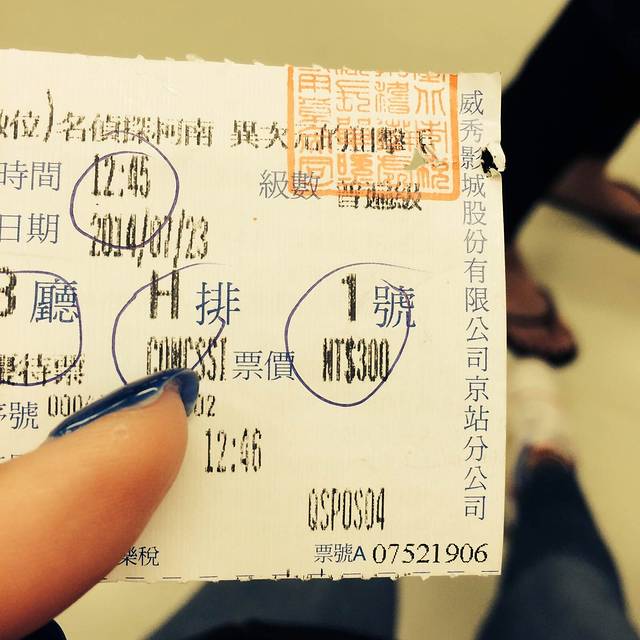 數位)名偵探柯南 異次元的狙擊手
時間 12:45 級數 普遍級
日期 2014/07/23
3 廳 H 排 1 號
CONCSSI 票價 NT$300
序號
02
12:46
QSPOS04
樂稅 票號A 07521906
威秀影城股份有限公司京站分公司